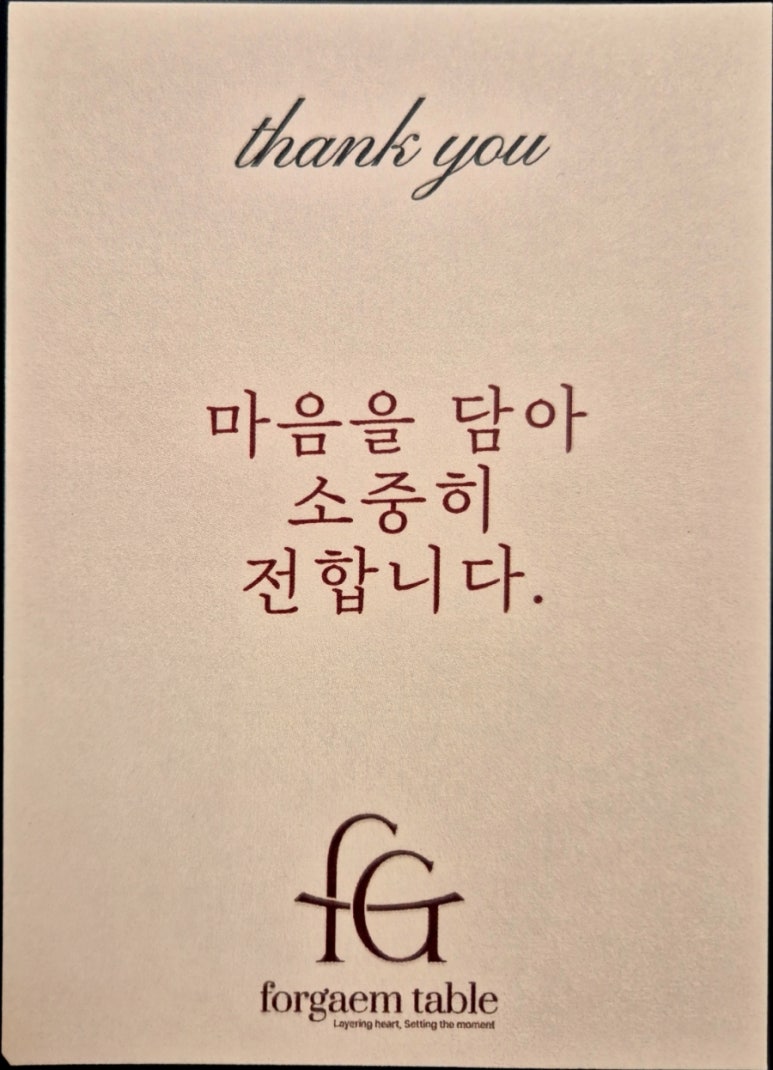 thank you
마음을 담아
소중히
전합니다.
fG
forgaem table
Layering heart, Setting the moment